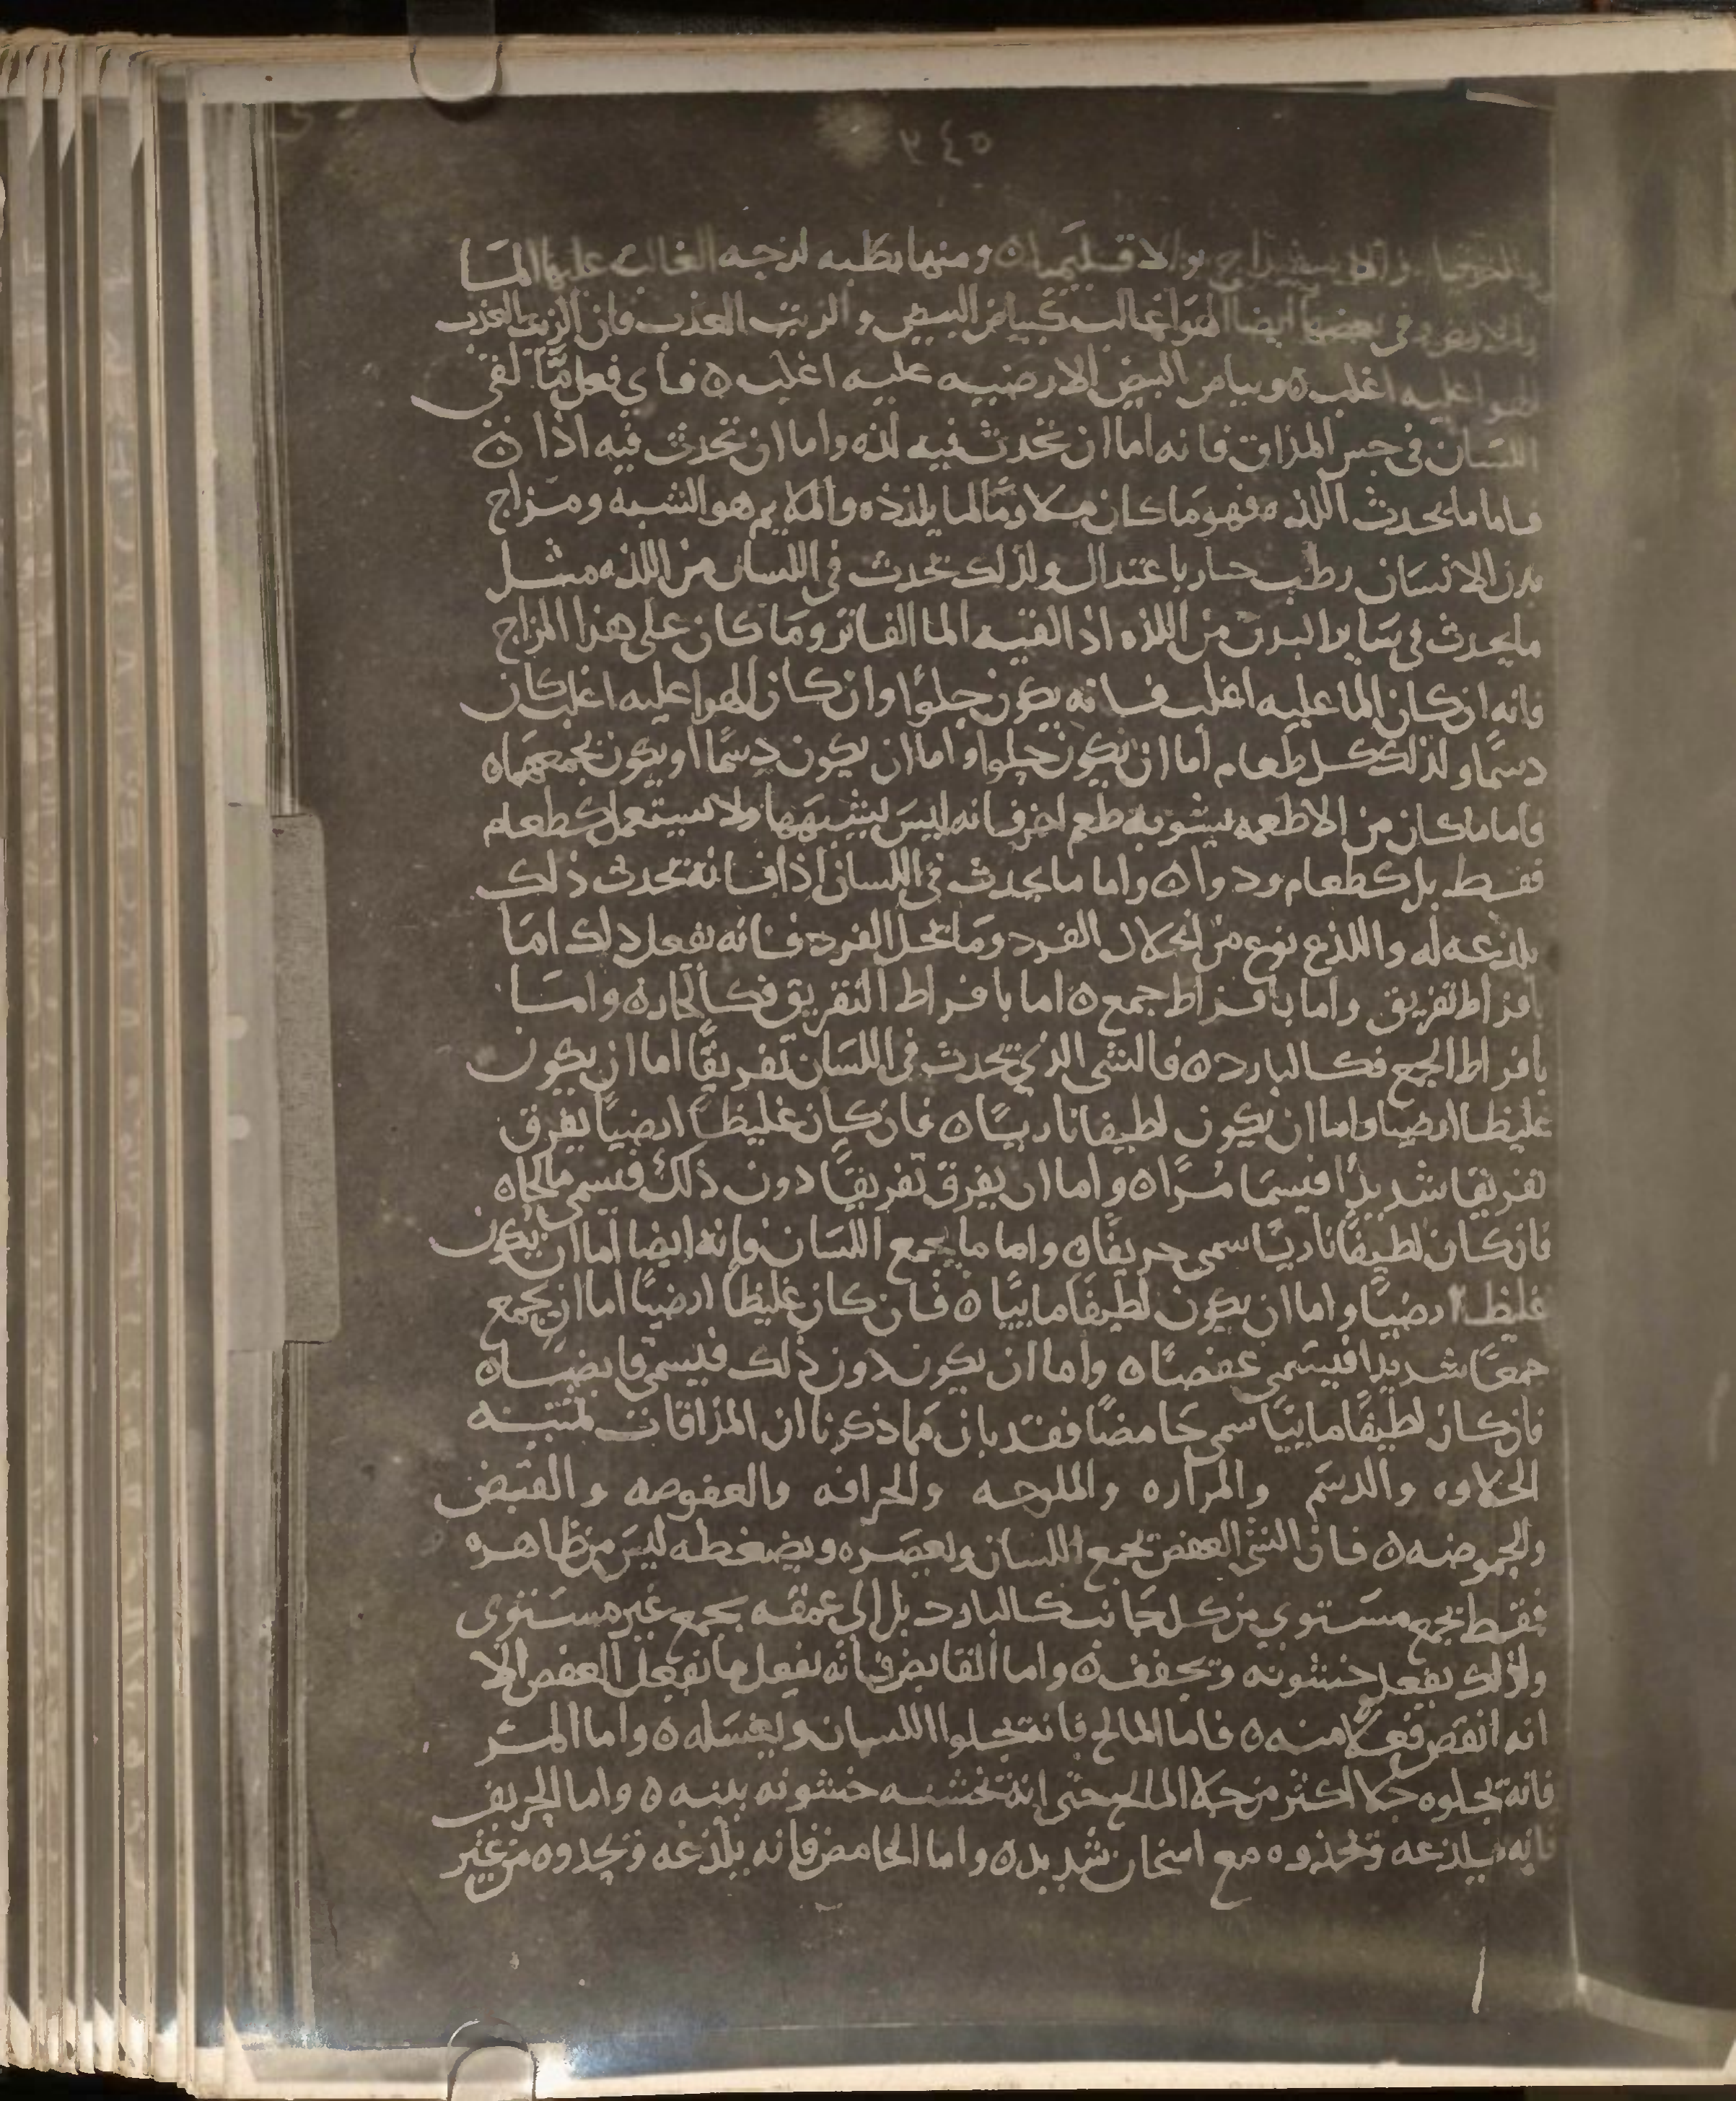 ٣٤٥
والاقليميا ٥ ومنها رطبه لزجه الغالب عليها المـا
وفي بعضها ايضا الهوا غالب كبياض البيض والزيت العذب فان الزيت العذب
الهوا عليه اغلب ٥ وبياض البيض الارضيه عليه اغلب ٥ فاي فعل ممّا لقي
اللسان في حس المذاق فانه اما ان تحدث فيه لذه واما ان تحدث فيه اذا ٥
فاما ما يحدث اللذه فهو ما كان ملاومًا لما يلذذه والملايم هو الشبه ومزاج
بدن الانسان رطب حار باعتدال ولذلك تحدث في اللسان من اللذه مثل
ما يحدث في ساير البدن من اللذه اذا لقيه الما الفاتر وما كان على هذا المزاج
فانه ان كان الما عليه اغلب فانه يكون حلوًا وان كان الهوا عليه اغلب كان
دسمًا ولذلك كل طعام اما ان يكون حلوا واما ان يكون دسمًا او يكون يجمعهما ٥
فاما ما كان من الاطعمه يشوبه طعم اخر فانه ليس يشبهها ولا يستعمل كطعام
فقط بل كطعام ودوا ٥ واما ما يحدث في اللسان اذا فانه يحدث ذلك
بلذعه له واللذع نوع من انحلال الفرد وما يحل الفرد فانه يفعل ذلك اما
بافراط تفريق واما بافراط جمع ٥ اما بافراط التفريق فكالحار ٥ واما
بافراط الجمع فكالبارد ٥ فالشي الذي يحدث في اللسان تفريقًا اما ان يكون
غليظا ارضيا واما ان يكون لطيفا ناريًا ٥ فان كان غليظا ارضيًا يفرق
تفريقا شديدًا فيسما مُرًّا ٥ واما ان يفرق تفريقًا دون ذلك فيسمى مالحًا ٥
فان كان لطيفًا ناريًا سمي حريفًا ٥ واما ما يجمع اللسان فانه ايضا اما ان يكون
غليظا ارضيًا واما ان يكون لطيفًا ماييًا ٥ فان كان غليظا ارضيًا اما ان يجمع
جمعًا شديدا فيسمى عفصًا ٥ واما ان يكون دون ذلك فيسمى قابضًا ٥
فان كان لطيفًا ماييًا سمي حامضًا فقد بان مما ذكرنا ان المذاقات ثمنيه
الحلاوه والدسم والمراره والملوحه والحرافه والعفوصه والقبض
والحموضه ٥ فان الشي العفص يجمع اللسان ويعصره ويضغطه ليس من ظاهره
فقط بجمع مستوي من كل جانب كالبارد بل الى عمقه بجمع غير مستوي
ولذلك يفعل خشونه وتجفف ٥ واما القابض فانه يفعل ما يفعل العفص الا
انه انقص فعلا منه ٥ فاما المالح فانه يجلوا اللسان ويغسله ٥ واما المر
فانه يجلوه جلا اكثر من جلا المالح حتى انه تخشنه خشونه بينه ٥ واما الحريف
فانه يلذعه وتحذوه مع اسخان شديد ٥ واما الحامض فانه يلذعه وتحدوه من غير